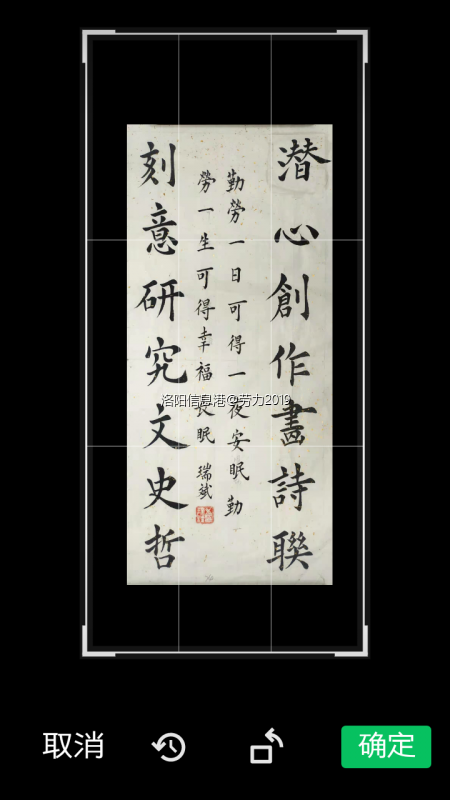 潛心創作畫詩聯
勤勞一日可得一夜安眠勤
勞一生可得幸福長眠 瑞斌
刻意研究文史哲
洛阳信息港@劳力2019
取消
确定